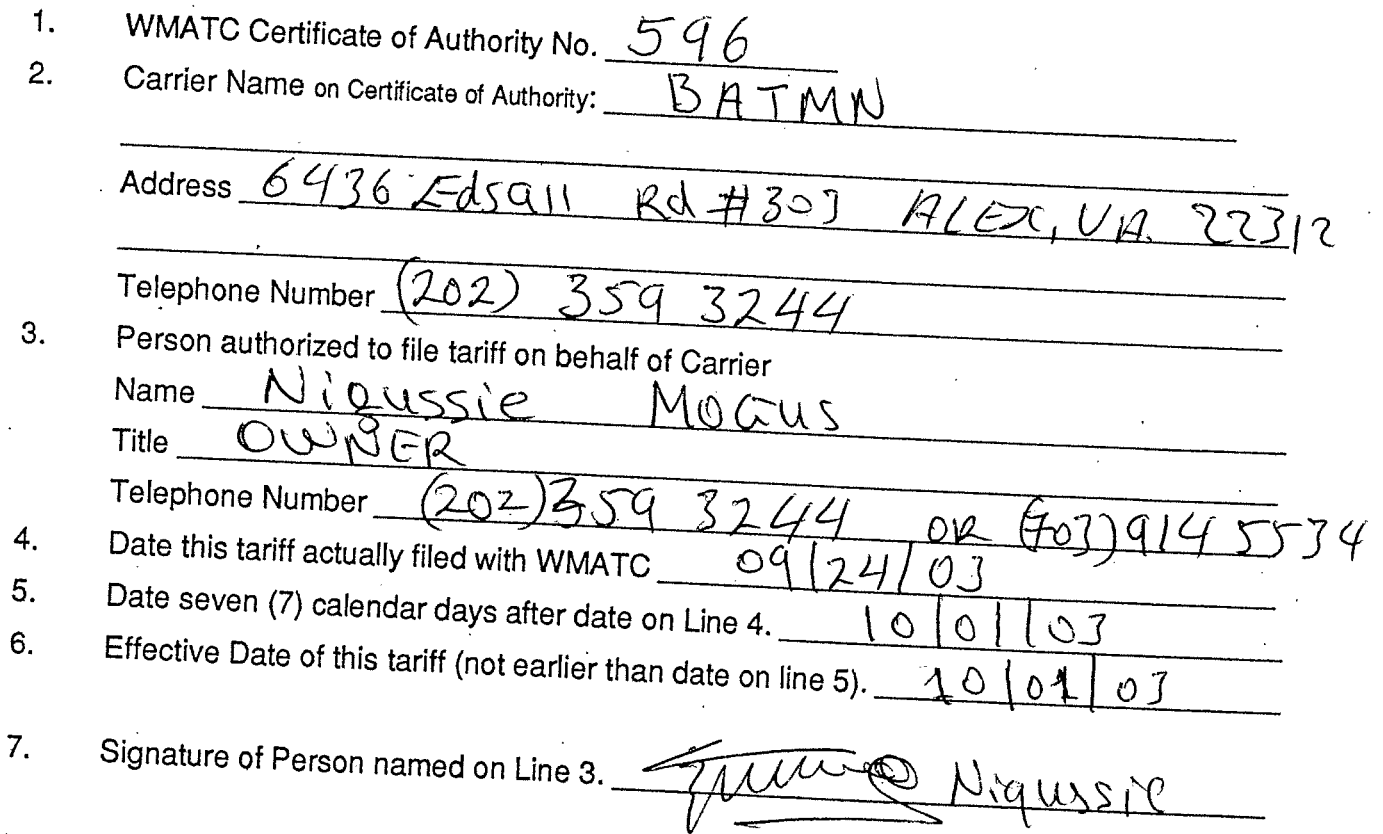 1. WMATC Certificate of Authority No. 596
2. Carrier Name on Certificate of Authority: BATMN
Address 6436 Edsall Rd #303 ALEX, VA. 22312
Telephone Number (202) 359 3244
3. Person authorized to file tariff on behalf of Carrier
Name Niqussie MOGUS
Title OWNER
Telephone Number (202) 359 3244 OR (703) 914 5534
4. Date this tariff actually filed with WMATC 09/24/03
5. Date seven (7) calendar days after date on Line 4. 10/01/03
6. Effective Date of this tariff (not earlier than date on line 5). 10/01/03
7. Signature of Person named on Line 3. Niqussie